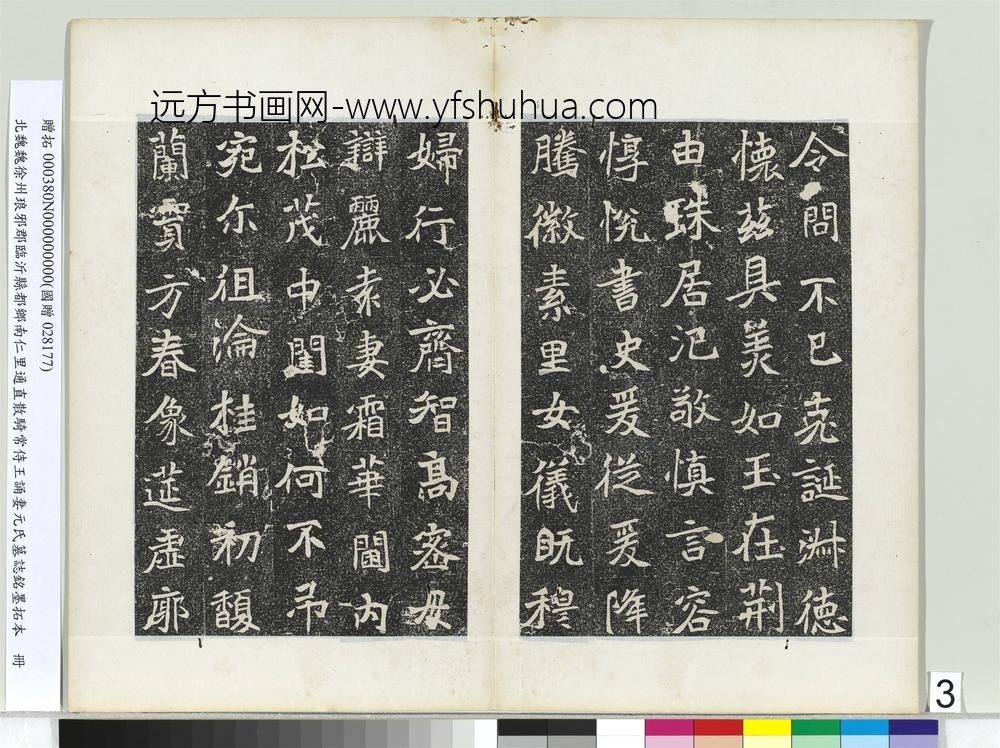 远方书画网-www.yfshuhua.com
令問不已克誕淑德
懷茲具美如玉在荆
由珠居汜敬慎言容
惇悅書史爰從爰降
騰徽素里女儀既穆
婦行必齊智高密母
辯麗袁妻霜華閫内
松茂中閨如何不弔
宛尒徂淪桂銷初馥
蘭實方春像筵虛廓
贈拓 000380N000000000(國贈 028177)
北魏魏徐州琅邪郡臨沂縣都鄉南仁里通直散騎常侍王誦妻元氏墓誌銘墨拓本 冊
3